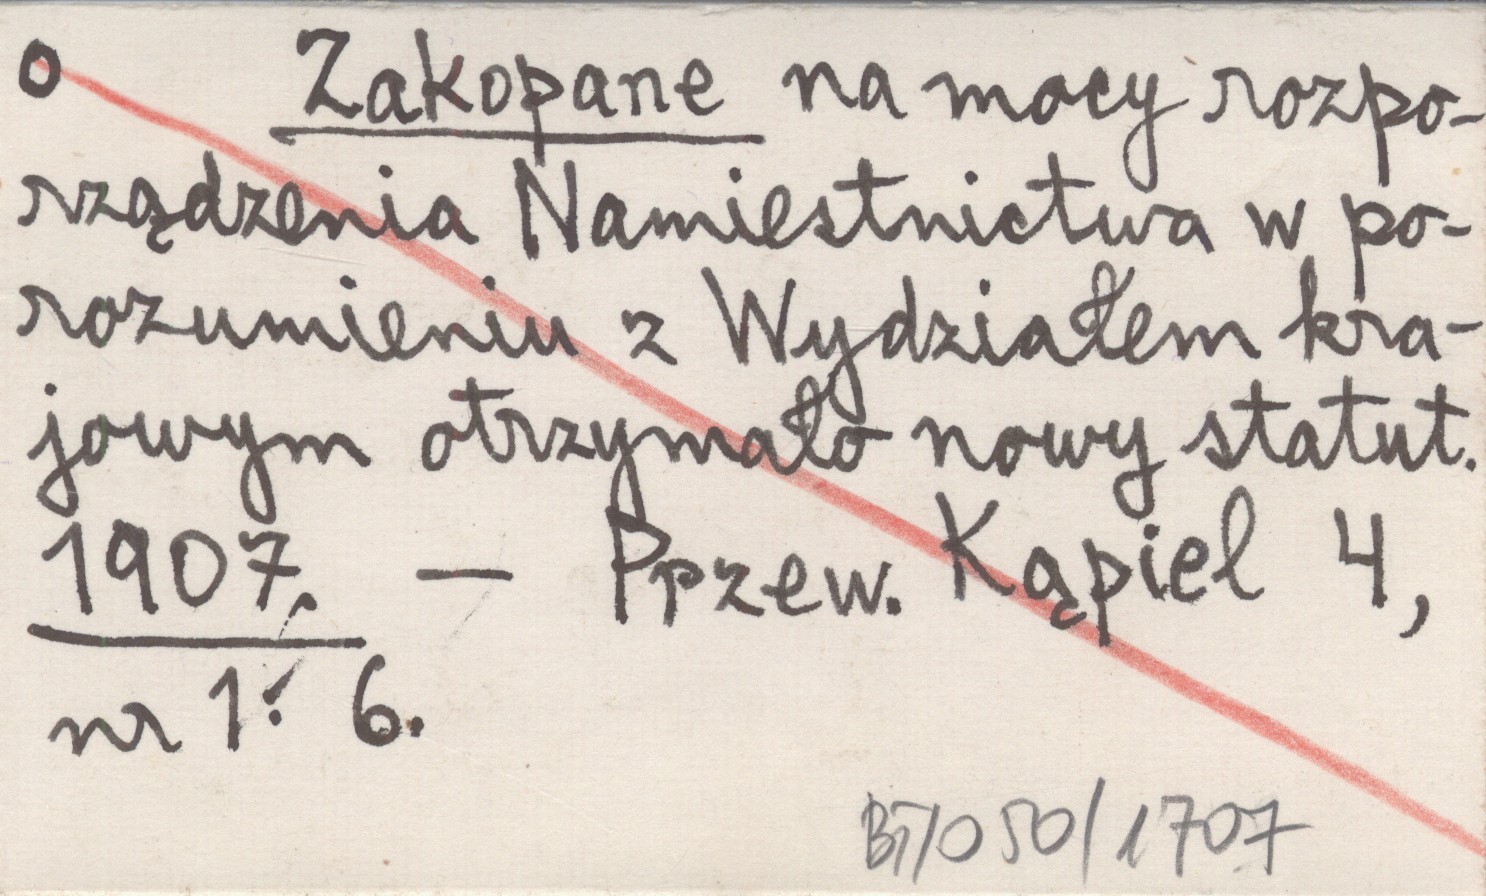 o Zakopane na mocy rozpo-
rządzenia Namiestnictwa w po-
rozumieniu z Wydziałem kra-
jowym otrzymało nowy statut.
1907. — Pprzew. Kąpiel 4,
nr 1: 6.
BT/050/1707